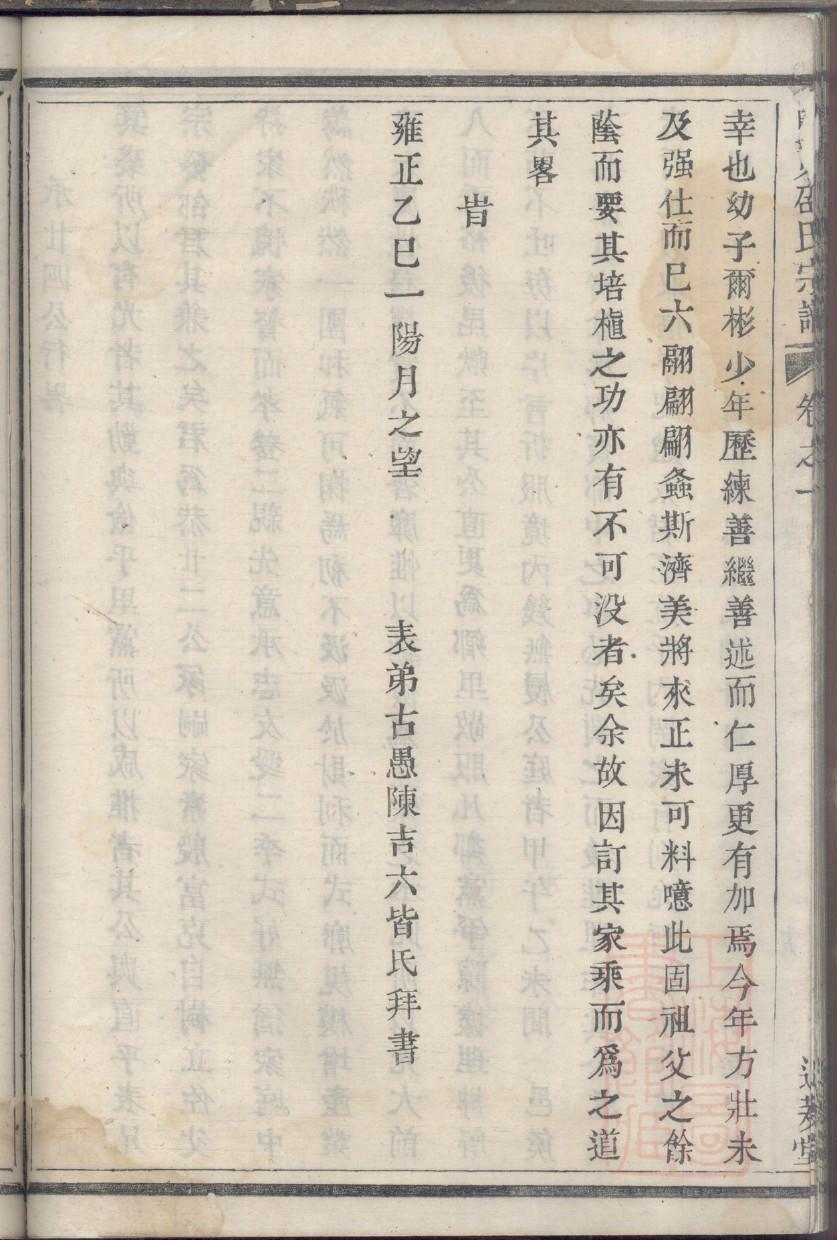 邵氏宗譜 卷之一
幸也幼子爾彬少年歷練善繼善述而仁厚更有加焉今年方壯未
及强仕而已六翩翩翩螽斯濟美將來正未可料噫此固祖父之餘
蔭而要其培植之功亦有不可没者矣余故因訂其家乘而爲之道
其畧
旹
雍正乙巳一陽月之望 表弟古愚陳吉六皆氏拜書